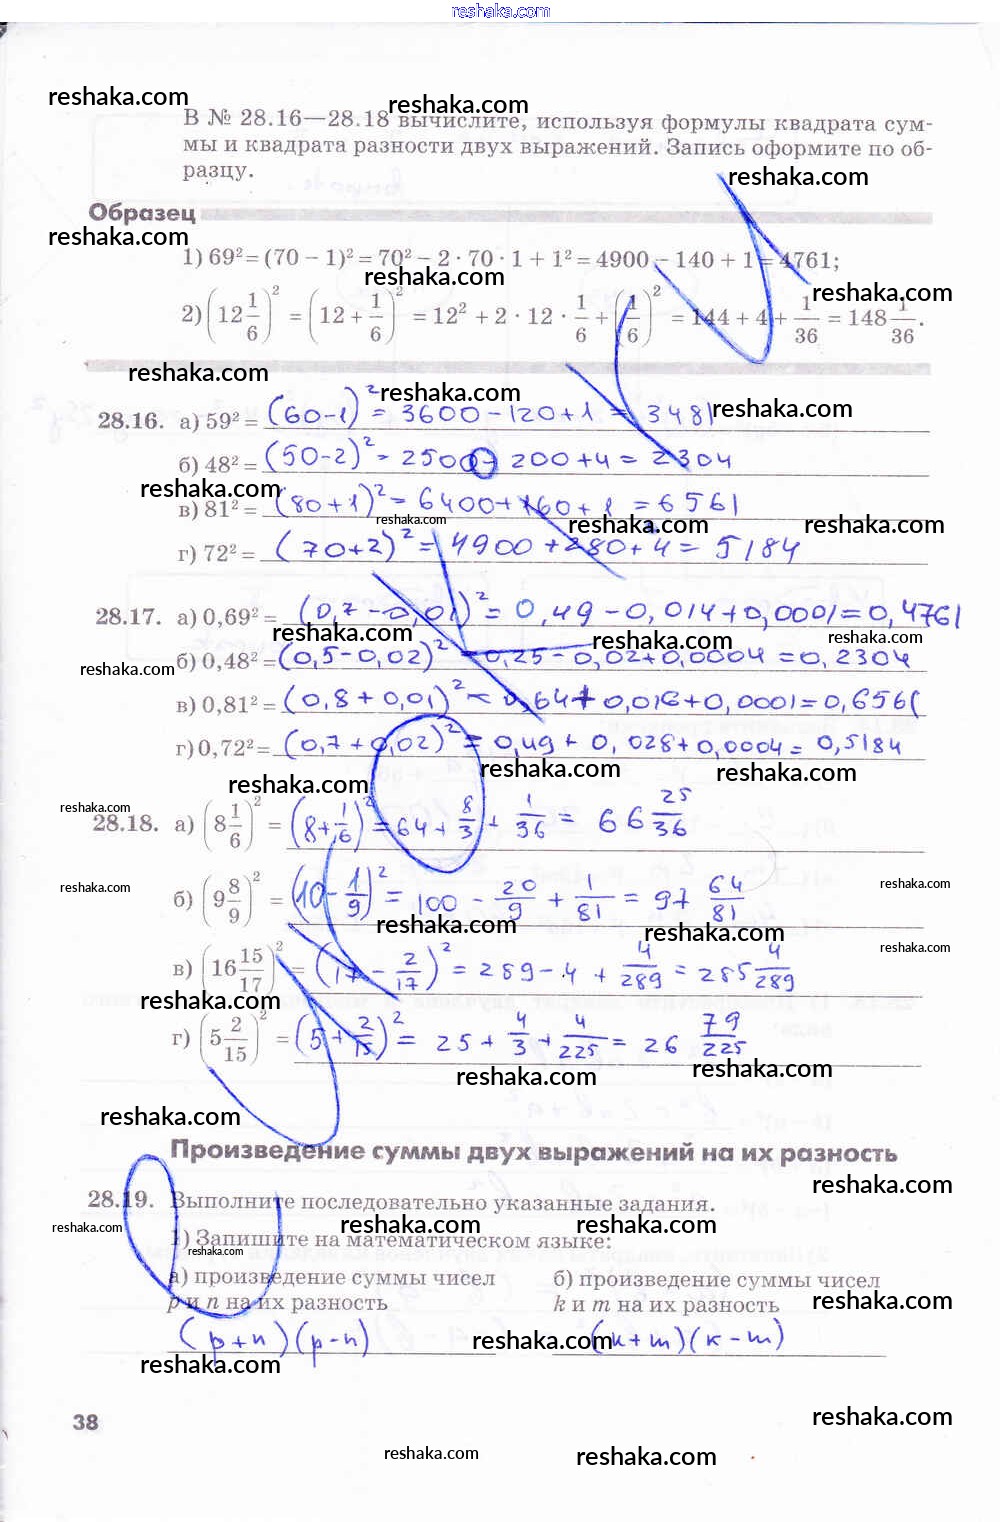 reshaka.com
reshaka.com
reshaka.com
В № 28.16—28.18 вычислите, используя формулы квадрата сум-
мы и квадрата разности двух выражений. Запись оформите по об-
разцу.
reshaka.com
Образец
reshaka.com
1) 69² = (70 − 1)² = 70² − 2 · 70 · 1 + 1² = 4900 − 140 + 1 = 4761;
reshaka.com
reshaka.com
2) (12 1/6)² = (12 + 1/6)² = 12² + 2 · 12 · 1/6 + (1/6)² = 144 + 4 + 1/36 = 148 1/36.
reshaka.com
reshaka.com
reshaka.com
28.16. а) 59² = (60-1)² = 3600 - 120 + 1 = 3481
б) 48² = (50-2)² = 2500 - 200 + 4 = 2304
reshaka.com
в) 81² = (80+1)² = 6400 + 160 + 1 = 6561
reshaka.com
reshaka.com
reshaka.com
г) 72² = (70+2)² = 4900 + 280 + 4 = 5184
28.17. а) 0,69² = (0,7 - 0,01)² = 0,49 - 0,014 + 0,0001 = 0,4761
reshaka.com
reshaka.com
reshaka.com
б) 0,48² = (0,5 - 0,02)² = 0,25 - 0,02 + 0,0004 = 0,2304
reshaka.com
в) 0,81² = (0,8 + 0,01)² = 0,64 + 0,016 + 0,0001 = 0,6561
г) 0,72² = (0,7 + 0,02)² = 0,49 + 0,028 + 0,0004 = 0,5184
reshaka.com
reshaka.com
reshaka.com
reshaka.com
28.18. а) (8 1/6)² = (8 + 1/6)² = 64 + 8/3 + 1/36 = 66 25/36
reshaka.com
reshaka.com
б) (9 8/9)² = (10 - 1/9)² = 100 - 20/9 + 1/81 = 97 64/81
reshaka.com
reshaka.com
reshaka.com
в) (16 15/17)² = (17 - 2/17)² = 289 - 4 + 4/289 = 285 4/289
reshaka.com
г) (5 2/15)² = (5 + 2/15)² = 25 + 4/3 + 4/225 = 26 79/225
reshaka.com
reshaka.com
reshaka.com
Произведение суммы двух выражений на их разность
reshaka.com
28.19. Выполните последовательно указанные задания.
reshaka.com
reshaka.com
reshaka.com
1) Запишите на математическом языке:
reshaka.com
а) произведение суммы чисел
p и n на их разность
б) произведение суммы чисел
k и m на их разность
reshaka.com
(p+n)(p-n)
(k+m)(k-m)
reshaka.com
reshaka.com
38
reshaka.com
reshaka.com
reshaka.com